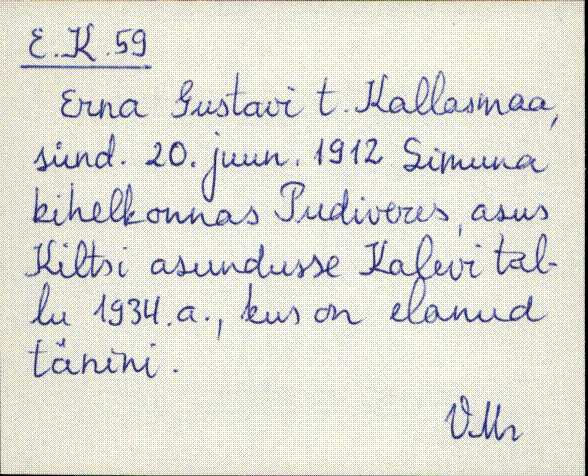 E.K.59
Erna Gustavi t. Kallasmaa,
sünd. 20. juun. 1912 Simuna
kihelkonnas Pudiveres, asus
Kiltsi asundusse Kalevi tal-
lu 1934.a., kus on elanud
tänini.
VMr